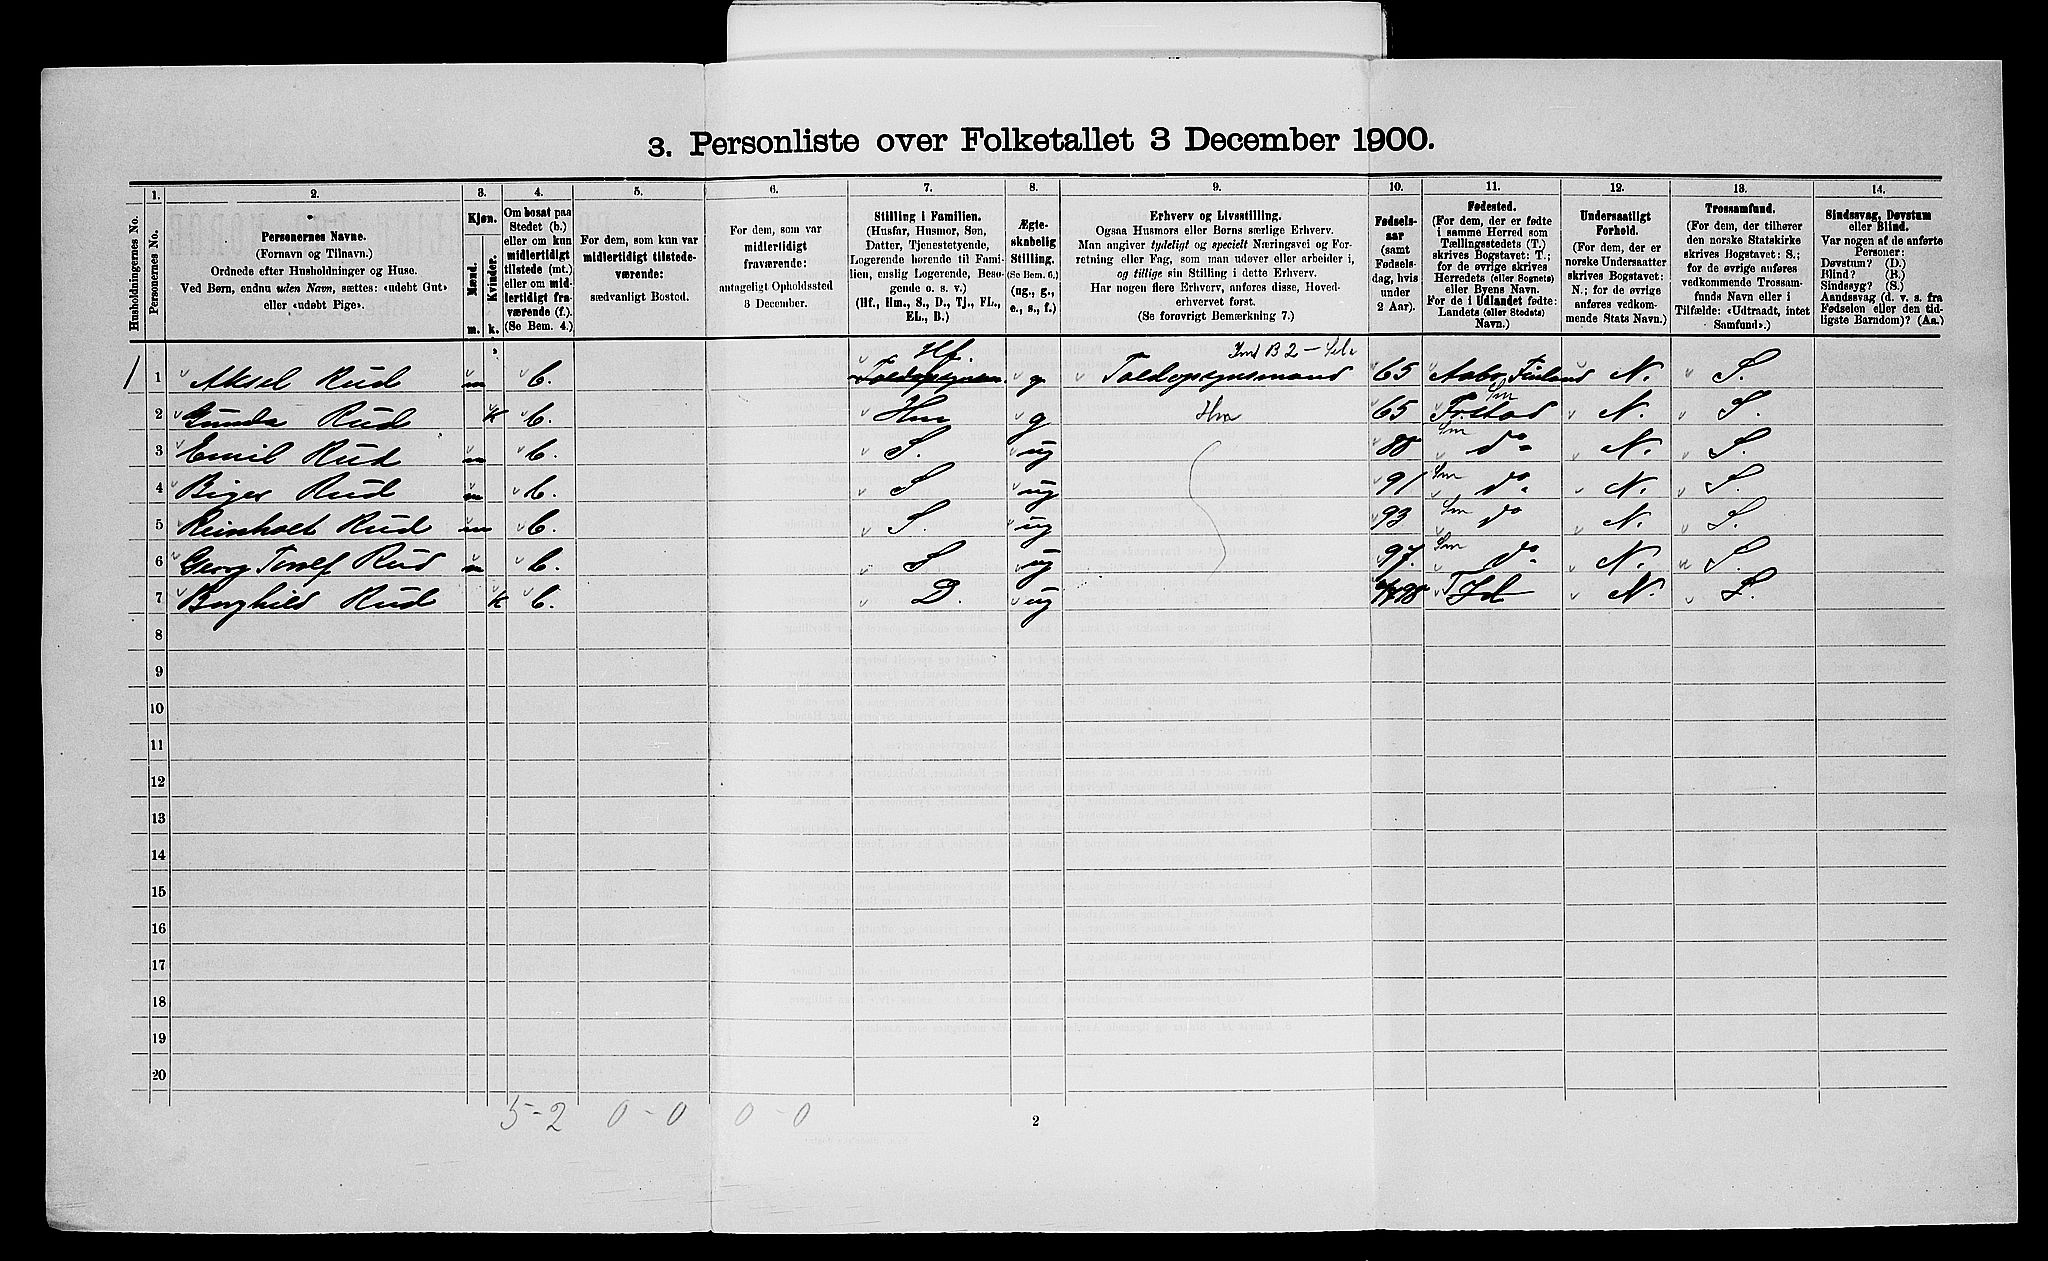 3. Personliste over Folketallet 3 December 1900.
Husholdningernes No.
1. Personernes No.
2. Personernes Navne. (Fornavn og Tilnavn.) Ordnede efter Husholdninger og Huse. Ved Børn, endnu uden Navn, sættes: «udøbt Gut» eller «udøbt Pige».
3. Kjøn. Mænd. m. Kvinder. k.
4. Om bosat paa Stedet (b.) eller om kun midlertidigt tilstede (mt.) eller om midlertidigt fraværende (f.). (Se Bem. 4.)
5. For dem, som kun var midlertidigt tilstedeværende: sædvanligt Bosted.
6. For dem, som var midlertidigt fraværende: antageligt Opholdssted 3 December.
7. Stilling i Familien. (Husfar, Husmor, Søn, Datter, Tjenestetyende, Logerende hørende til Familien, enslig Logerende, Besøgende o. s. v.) (Hf., Hm., S., D., Tj., FL., EL., B.)
8. Ægteskabelig Stilling. (Se Bem. 6.) (ug., g., e., s., f.)
9. Erhverv og Livsstilling. Ogsaa Husmors eller Børns særlige Erhverv. Man angiver tydeligt og specielt Næringsvei og Forretning eller Fag, som man udøver eller arbeider i, og tillige sin Stilling i dette Erhverv. Har nogen flere Erhverv, anføres disse, Hovederhvervet først. (Se forøvrigt Bemærkning 7.)
10. Fødselsaar (samt Fødselsdag, hvis under 2 Aar).
11. Fødested. (For dem, der er fødte i samme Herred som Tællingsstedets (T.) skrives Bogstavet: T.; for de øvrige skrives Herredets (eller Sognets) eller Byens Navn. For de i Udlandet fødte: Landets (eller Stedets) Navn.)
12. Undersaatligt Forhold. (For dem, der er norske Undersaatter skrives Bogstavet: N.; for de øvrige anføres vedkommende Stats Navn.)
13. Trossamfund. (For dem, der tilhører den norske Statskirke skrives Bogstavet: S.; for de øvrige anføres vedkommende Trossamfunds Navn eller i Tilfælde: «Udtraadt, intet Samfund».)
14. Sindssvag, Døvstum eller Blind. Var nogen af de anførte Personer: Døvstum? (D.) Blind? (B.) Sindssyg? (S.) Aandssvag (d. v. s. fra Fødselen eller den tidligste Barndom)? (Aa.)
1 1 Aksel Rud m b. Hf. g Toldopsynsmand 65 Aabo Finland N. S.
2 Gunda Rud k b. Hm g Hm 65 Frstad Sm N. S.
3 Emil Rud m b. S. ug 88 Sm do N. S.
4 Biger Rud m b. S ug 91 Sm do N. S.
5 Reinholt Rud m b. S. ug 93 Sm do N. S.
6 Georg Torolf Rud m b. S ug 97. Sm do N. S.
7 Borghild Rud k b. D. ug T N. S.
8
9
10
11
12
13
14
15
16
17
18
19
20
5-2 0-0 0-0
2